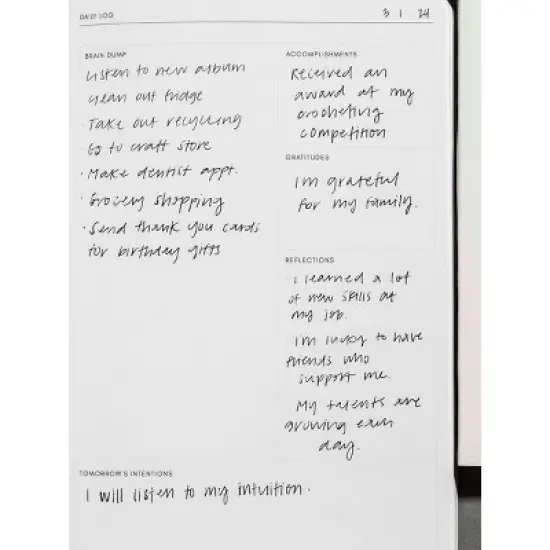 DAILY LOG 3 | 24
BRAIN DUMP
Listen to new album
Clean out fridge
· Take out recycling
· Go to craft store
· Make dentist appt.
· Grocery shopping
· Send thank you cards
for birthday gifts
ACCOMPLISHMENTS
Received an
award at my
crocheting
competition
GRATITUDES
I'm grateful
for my family.
REFLECTIONS
I learned a lot
of new skills at
my job.
I'm lucky to have
friends who
support me.
My talents are
growing each
day.
TOMORROW'S INTENTIONS
I will listen to my intuition.